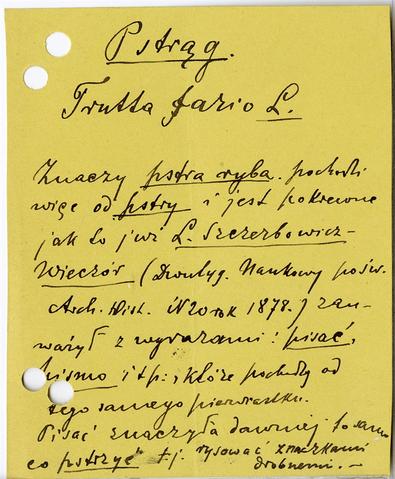 Pstrąg.
Trutta fario L.
Znaczy pstra ryba. pochodzi
więc od pstry i jest pokrewne
jak to już L. Szczerbowicz-
Wieczór (Dwutyg. Naukowy pośw.
Arch. Hist. N 20 rok 1878.) zau-
ważył z wyrazami: pisać,
pismo i tp:, które pochodzą od
tego samego pierwiastku.
Pisać znaczyła dawniej to samo
co pstrzyć tj. rysować znaczkami
drobnemi.–